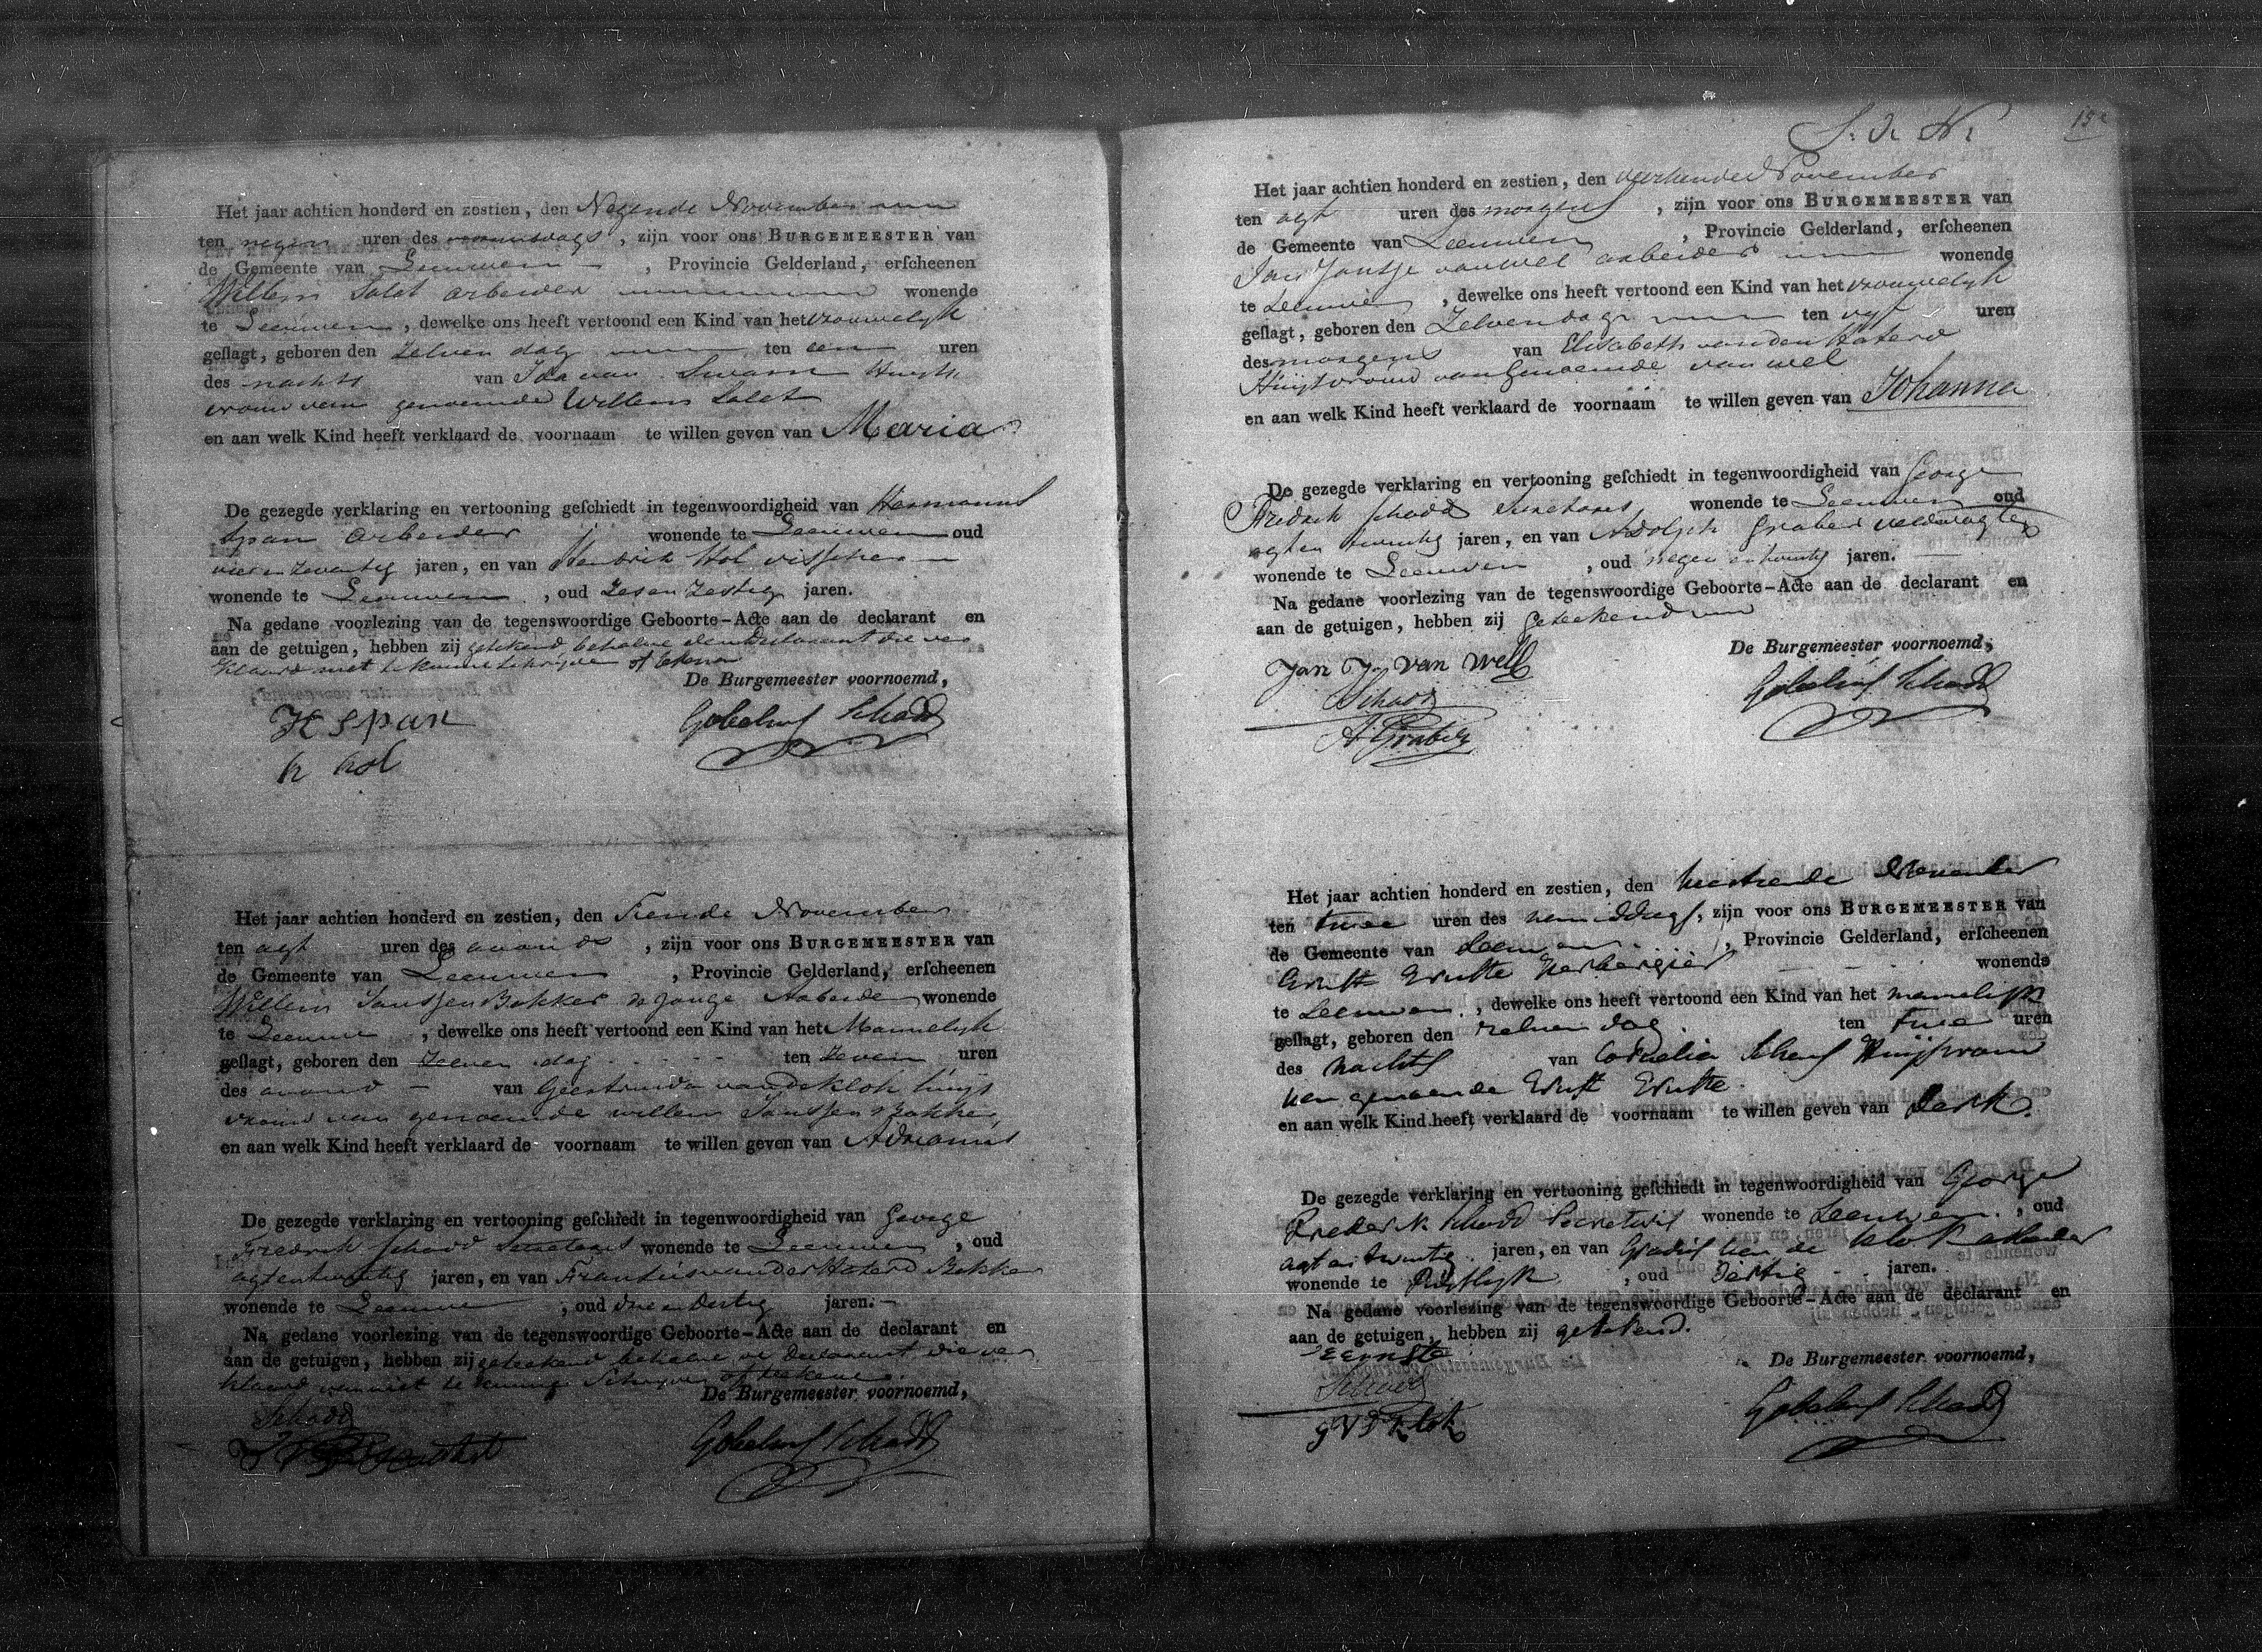 Het jaar achtien honderd en zestien, den Negende November
ten negen uren des voormidags, zijn voor ons BURGEMEESTER van
de Gemeente van Leeuwen, Provincie Gelderland, erfcheenen
Willem Salet arbeider wonende
te Leeuwen, dewelke ons heeft vertoond een Kind van het vrouwelyk
geflagt, geboren den Zelven dag ten een uren
des nachts van Ida van Swam Huys
vrouw van genoemde Willem Salet
en aan welk Kind heeft verklaard de voornaam te willen geven van Maria
De gezegde verklaring en vertooning gefchiedt in tegenwoordigheid van Hermanus
Span arbeider wonende te Leeuwen oud
vier en zeventig jaren, en van Hendrik Hol visscher
wonende te Leeuwen, oud Zes en Zestig jaren.
Na gedane voorlezing van de tegenswoordige Geboorte-Acte aan de declarant en
aan de getuigen, hebben zij getekend behalve den Declarant die ver
klaard niet te kunne schrijven of tekenen
De Burgemeester voornoemd,
H span
h hol
Gobelius Schadd
Het jaar achtien honderd en zestien, den Tiende November
ten agt uren des avonds, zijn voor ons BURGEMEESTER van
de Gemeente van Leeuwen, Provincie Gelderland, erfcheenen
Willem Janssen Bakker de Jonge Arbeider wonende
te Leeuwe, dewelke ons heeft vertoond een Kind van het Mannelyk
geflagt, geboren den Zelven dag ten Zeven uren
des avond van Geertruida van de Klok huys
vrouw van genoemde willem Janssen Bakker
en aan welk Kind heeft verklaard de voornaam te willen geven van Adrianus
De gezegde verklaring en vertooning gefchiedt in tegenwoordigheid van George
Fredrik Schadd Secretaris wonende te Leeuwen, oud
agt en twintig jaren, en van Francis van der Haterd Bakker
wonende te Leeuwe, oud drie en dertig jaren.
Na gedane voorlezing van de tegenswoordige Geboorte-Acte aan de declarant en
aan de getuigen, hebben zij geteekend behalve de Declarant die ver
klaard van niet te kunne Schryven of tekene.
De Burgemeester voornoemd,
Schadd
Gobelius Schadd
S. D. N.
15
Het jaar achtien honderd en zestien, den veertiende November
ten agt uren des morgens, zijn voor ons BURGEMEESTER van
de Gemeente van Leeuwen, Provincie Gelderland, erfcheenen
Jan Jantje van wel arbeider wonende
te Leeuwen, dewelke ons heeft vertoond een Kind van het vrouwelyk
geflagt, geboren den Zelven dag ten vyf uren
des morgens van Elisabeth van den Haterd
Huysvrouw van Genoemde van wel
en aan welk Kind heeft verklaard de voornaam te willen geven van Johanna
De gezegde verklaring en vertooning gefchiedt in tegenwoordigheid van George
Fredrik Schadd Secretaris wonende te Leeuwen oud
agt en twintig jaren, en van Adolph Graber veldwagter
wonende te Leeuwen, oud negen en twintig jaren.
Na gedane voorlezing van de tegenswoordige Geboorte-Acte aan de declarant en
aan de getuigen, hebben zij Geteekend
De Burgemeester voornoemd,
Jan J. van Well
Schadd
A Graber
Gobelius Schadd
Het jaar achtien honderd en zestien, den November
ten twee uren des namiddags, zijn voor ons BURGEMEESTER van
de Gemeente van Leeuwen, Provincie Gelderland, erfcheenen
Ernst Ernste Herbergier wonende
te Leeuwen, dewelke ons heeft vertoond een Kind van het mannelijk
geflagt, geboren den zelven dag ten twee uren
des nachts van Cornelia Huijsvrouw
van genoemde Ernst Ernste.
en aan welk Kind heeft verklaard de voornaam te willen geven van Derk.
De gezegde verklaring en vertooning gefchiedt in tegenwoordigheid van George
Frederik Schadd Secretaris wonende te Leeuwen, oud
agt en twintig jaren, en van Gradus van de Klok
wonende te, oud dertig jaren.
Na gedane voorlezing van de tegenswoordige Geboorte-Acte aan de declarant en
aan de getuigen, hebben zij getekend.
De Burgemeester voornoemd,
E Ernste
Schadd
G V D Klok
Gobelius Schadd